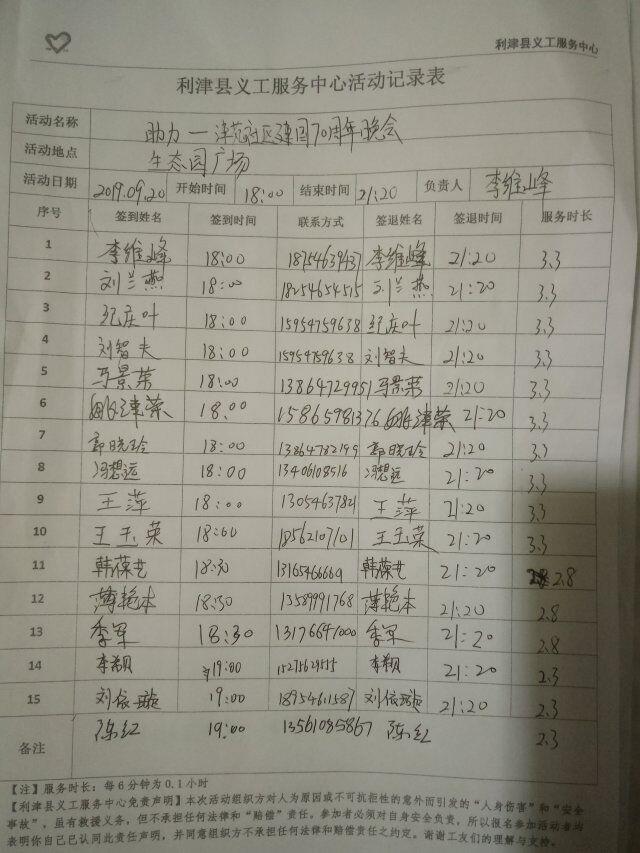 利津县义工服务中心
利津县义工服务中心活动记录表
活动名称 助力一津苑社区建国70周年晚会
活动地点 生态园广场
活动日期 2019.09.20 开始时间 18:00 结束时间 21:20 负责人 李维峰
序号 签到姓名 签到时间 联系方式 签退姓名 签退时间 服务时长
1 李维峰 18:00 18754639437 李维峰 21:20 3.3
2 刘兰燕 18:00 18254654515 刘兰燕 21:20 3.3
3 纪庆叶 18:00 15954759638 纪庆叶 21:20 3.3
4 刘智夫 18:00 15954759638 刘智夫 21:20 3.3
5 马景荣 18:00 13864729951 马景荣 21:20 3.3
6 津荣 18:00 15865981376 津荣 21:20 3.3
7 郭晓玲 18:00 13864782199 郭晓玲 21:20 3.3
8 冯想远 18:00 13406108516 冯想远 21:20 3.3
9 王萍 18:00 13054637821 王萍 21:20 3.3
10 王玉英 18:00 18562107101 王玉英 21:20 3.3
11 韩葆艺 18:30 13165466669 韩葆艺 21:20 2.8
12 薄艳本 18:30 13589991768 薄艳本 21:20 2.8
13 季军 18:30 13176641000 季军 21:20 2.8
14 李颖 19:00 15275629515 李颖 21:20 2.3
15 刘依璇 19:00 18954611587 刘依璇 21:20 2.3
备注 陈红 19:00 13561085867 陈红 2.3
【注】服务时长：每6分钟为0.1小时
【利津县义工服务中心免责声明】本次活动组织方对人为原因或不可抗拒性的意外而引发的“人身伤害”和“安全
事故”，虽有救援义务，但不承担任何法律和“赔偿”责任。参加者必须对自身安全负责，所以报名参加活动者均
表明你自己已认同此责任声明，并同意组织方不承担任何法律和赔偿责任之约定。谢谢工友们的理解与支持。